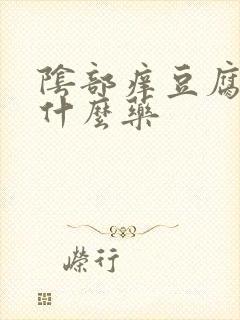 陰部痒豆腐
什麼藥
榮行